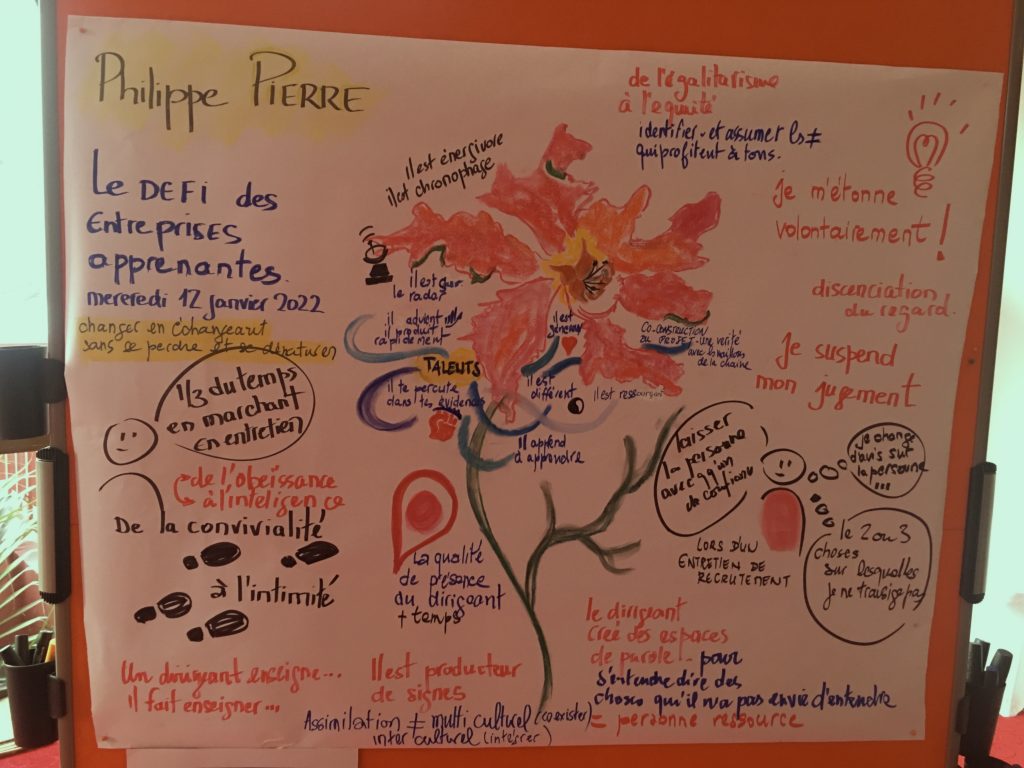 Philippe PIERRE
Le DEFI des
Entreprises
apprenantes.
mercredi 12 janvier 2022
changer en échangeant
sans se perdre et se dénaturer
1/3 du temps
en marchant
en entretien
de l'obeissance
à l'inteligence
De la convivialité
à l'intimité
Un dirigeant enseigne...
il fait enseigner...
il est énergivore
il est chronophage
il est sur
le radar
il advient
il produit
rapidement
TALENTS
il te percute
dans tes évidences
il est
généreux
il est
différent
il est ressourçant
Il apprend
à apprendre
CO-CONSTRUCTION
DU PROJET - Une vérité
avec les maillons
de la chaine
La qualité
de présence
du dirigeant
+ temps
Il est producteur
de signes
Assimilation ≠ multi culturel (coexister)
inter culturel (intégrer)
de l'égalitarisme
à l'equité
identifier et assumer les ≠
qui profitent à tous.
je m'étonne
volontairement !
discenciation
du regard.
Je suspend
mon jugement
laisser
la personne
avec qq'un
de confiance
je change
d'avis sur
la personne
...
le 2 ou 3
choses
sur lesquelles
je ne transige pas
LORS D'UN
ENTRETIEN DE
RECRUTEMENT
le dirigeant
crée des espaces
de parole - pour
s'entendre dire des
choses qu'il n'a pas envie d'entendre
= personne ressource